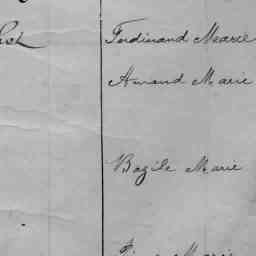 Ferdinand Marie
Amand Marie
Bazile Marie
Marie